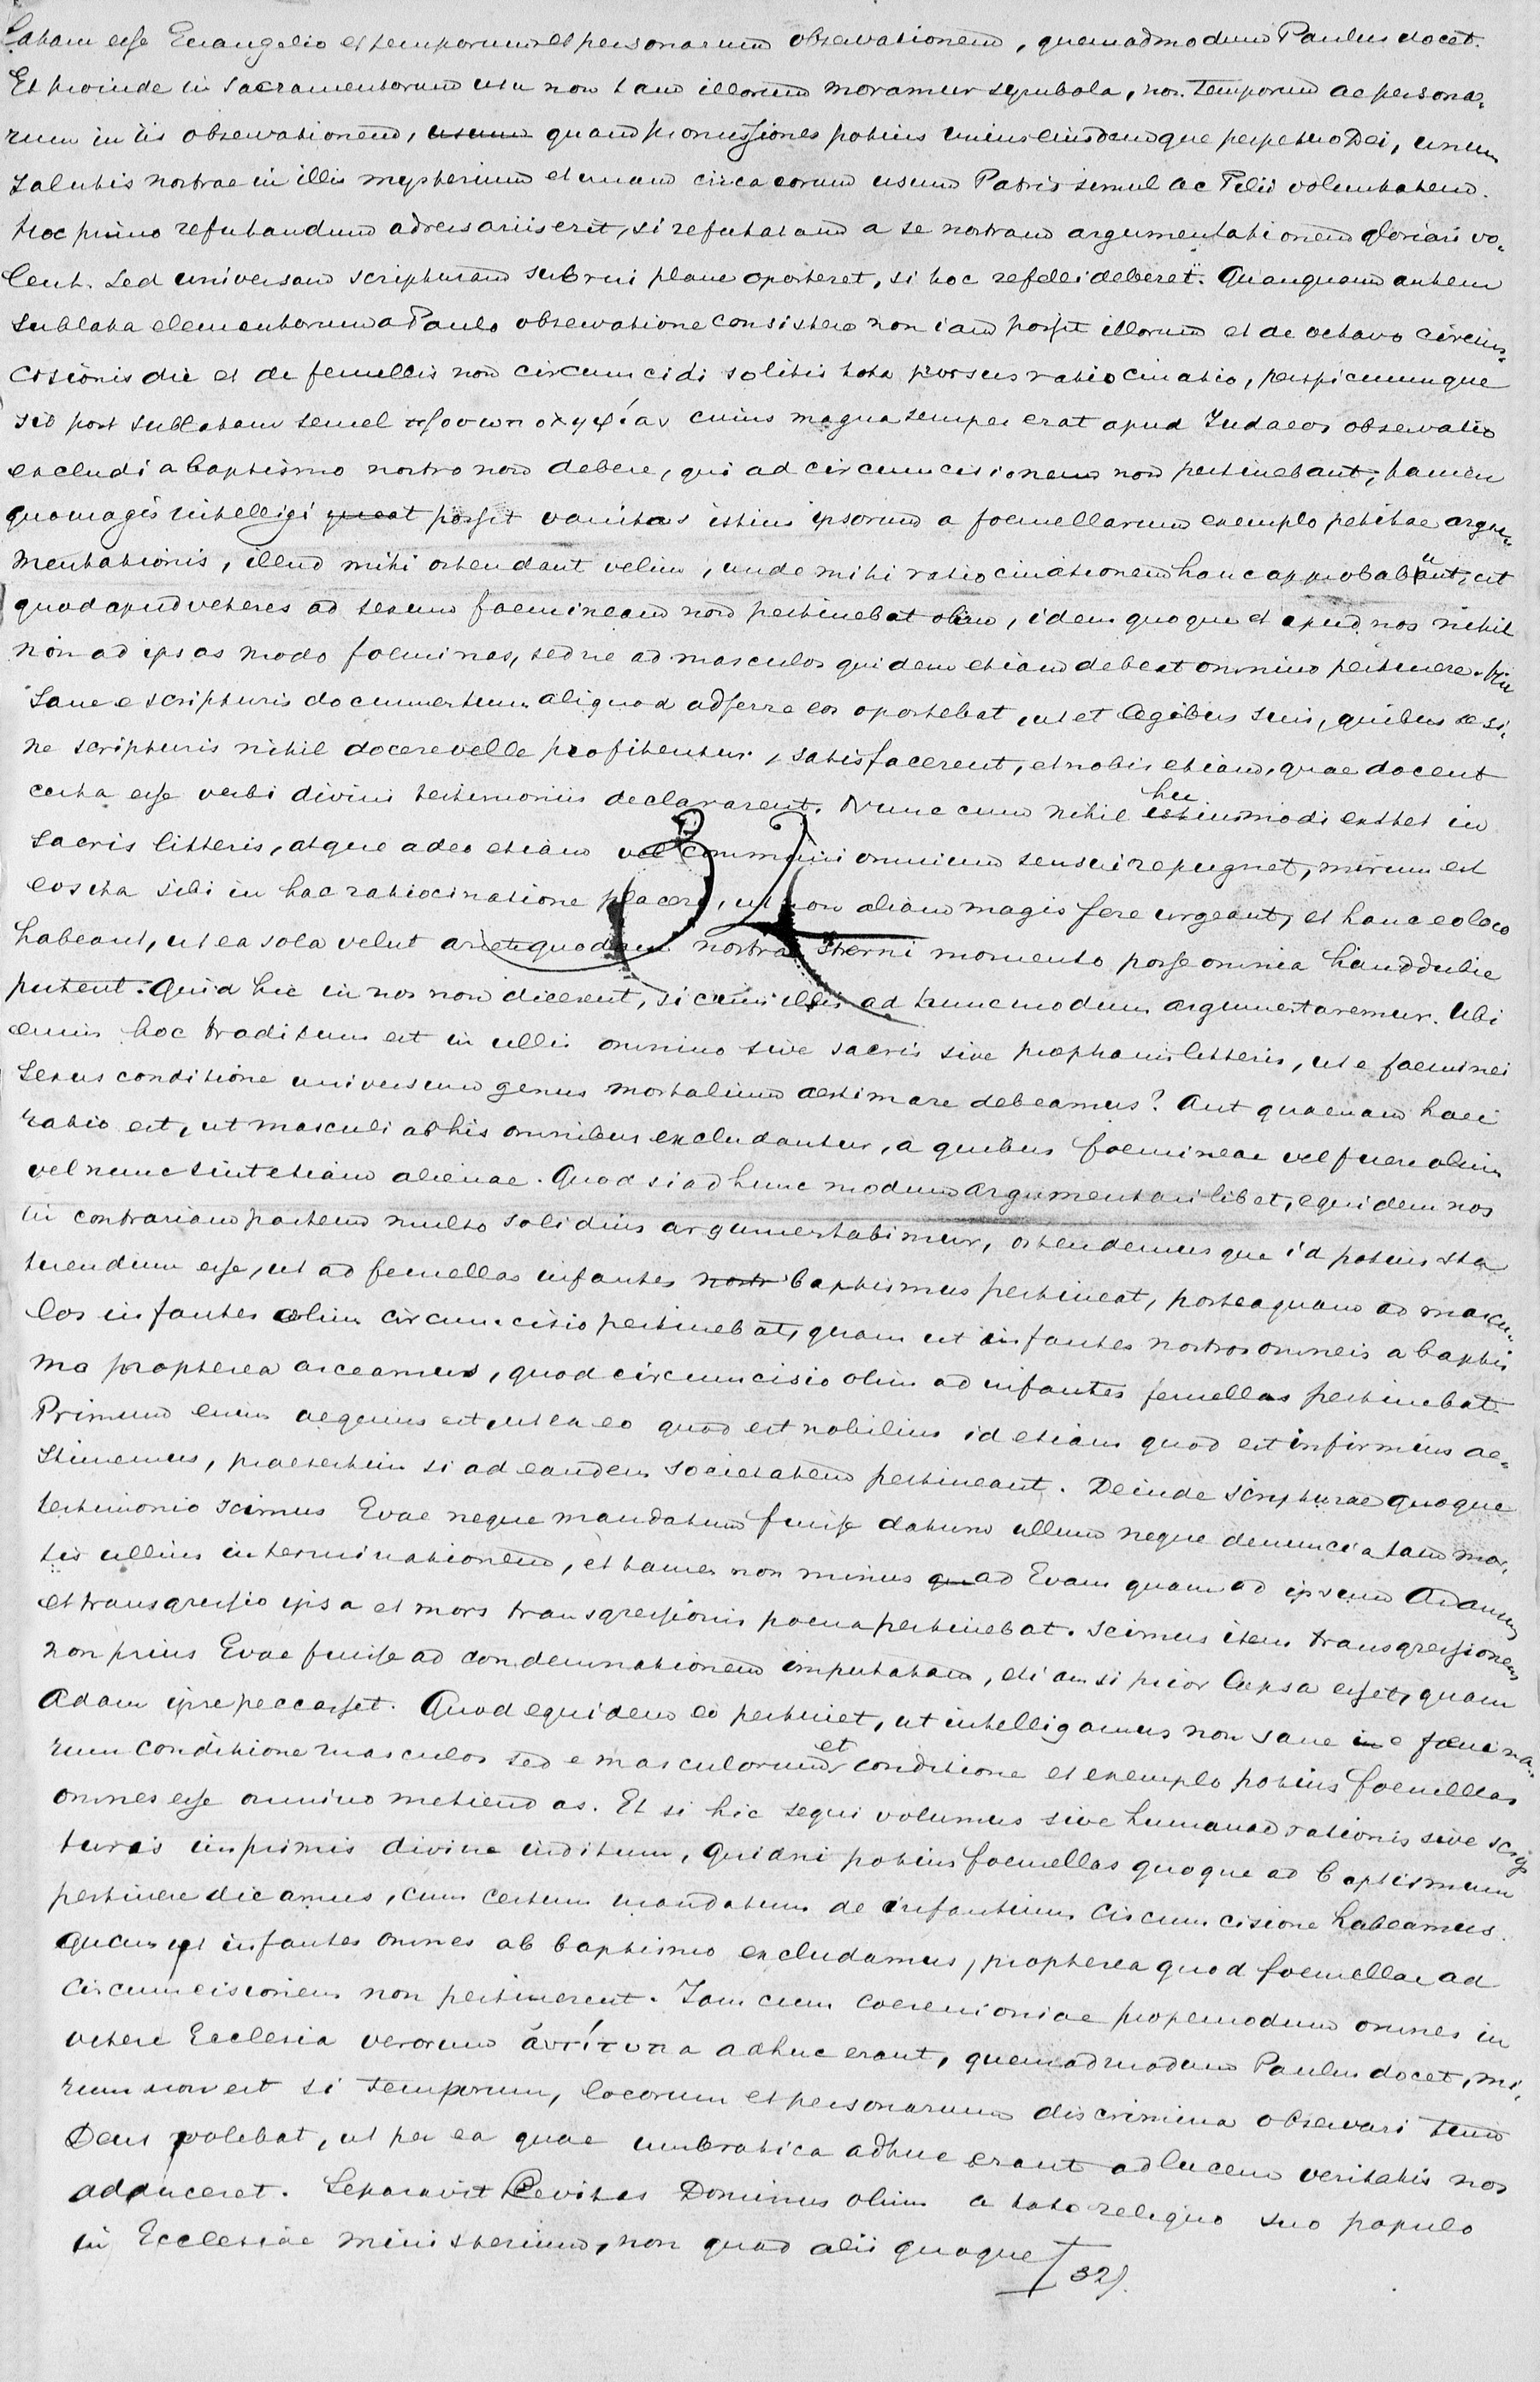 latam esse Euangelio et temporum et personarum observationem, quemadmodum Paulus docet.
Et proinde in sacramentorum usu non tam illorum moramur symbola, non temporum ac persona-
rum in iis observationem, usum quam promissiones potius unius eiusdemque perpetuo Dei, unum
salutis nostrae in illis mysterium et unam circa eorum usum Patris simul ac Filii voluntatem.
Hoc primo refutandum adversariis erit, si refutatam a se nostram argumentationem gloriari vo-
lent. Sed universam scripturam subrui plane oporteret, si hoc refelli deberet. Quanquam autem
sublata elementorum a Paulo observatione consistere non iam possit illorum et de octavo circum-
cisionis die et de femellis non circumcidi solitis tota prorsus ratiocinatio, perspicuumque
sit post sublatam semel προσωποληψίαν cuius magna semper erat apud Judaeos observatio
excludi a baptismo nostro non debere, qui ad circumcisionem non pertinebant, tamen
quo magis intelligi queat possit vanitas istius ipsorum a foemellarum exemplo petitae argu-
mentationis, illud mihi ostendant velim, unde mihi ratiocinationem hanc approbabunt, ut
quod apud veteres ad sexum foemineam non pertinebat olim, idem quoque et apud nos nihil
non ad ipsas modo foeminas, sed ne ad masculos quidem etiam debeat omnino pertinere. Hic
sane e scripturis documentum aliquod adferre eos oportebat, ut et legibus suis, quibus se si-
ne scripturis nihil docere velle profitentur, satisfacerent, et nobis etiam, quae docent
certa esse verbi divini testimoniis declararent. Nunc cum nihil istiusmodi hu extet in
sacris litteris, atque adeo etiam vel communi omnium sensui repugnet, mirum est
eos ita sibi in hac ratiocinatione placere, ut non aliam magis fere urgeant, et hanc eo loco
32
habeant, ut ea sola velut ariete quodam nostra sterni momento posse omnia haud dubie
putent. Quid hic in nos non dicerent, si cum illis ad hunc modum argumentaremur. Ubi
enim hoc traditum est in ullis omnino sive sacris sive prophanis litteris, ut e foeminei
sexus conditione universum genus mortalium aestimare debeamus? Aut quaenam haec
ratio est, ut masculi ab his omnibus excludantur, a quibus foemineae vel fuere olim
vel nunc sint etiam alienae. Quod si ad hunc modum argumentari libet, equidem nos
in contrariam partem multo solidius argumentabimur, ostendemusque id potius sta
tuendum esse, ut ad femellas infantes nostr baptismus pertineat, posteaquam ad mascu-
los infantes olim circumcisio pertinebat, quam ut infantes nostros omneis a baptis
mo propterea arceamus, quod circumcisio olim ad infantes femellas pertinebat.
Primum enim aequius est, ut ex eo quod est nobilius id etiam quod est infirmius ae-
stimemus, praesertim si ad eandem societatem pertineant. Deinde scripturae quoque
testimonio scimus Evae neque mandatum fuisse datum ullum neque denunciatam mor-
tis ullius interminationem, et tamen non minus qu ad Evam quam ad ipsum Adamum
et transgressio ipsa et mors transgressionis poena pertinebat. Scimus item transgressionem
non prius Evae fuisse ad condemnationem imputatam, etiamsi prior lapsa esset, quam
Adam ipse peccasset. Quod equidem eo pertinet, ut intelligamus non sane in e foemina-
rum conditione masculos sed e masculorum et conditione et exemplo potius foemellas
omnes esse omnino metiendas. Et si hic sequi volumus sive humanae rationis sive scrip
turis inprimis divine inditum, quidni potius foemellas quoque ad baptismum
pertinere dicamus, cum certum mandatum de infantium circumcisione habeamus.
quam ut infantes omnes ab baptismo excludamus, propterea quod foemellae ad
circumcisionem non pertinerent. Iam cum coeremoniae propemodum omnes in
vetere Ecclesia verorum ἀντίτυπα adhuc erant, quemadmodum Paulus docet, mi-
rum non est si temporum, locorum et personarum discrimina observari tum
Deus volebat, ut per ea quae umbratica adhuc erant ad lucem veritatis nos
adduceret. Separavit Levitas Dominus olim a toto reliquo suo populo
in Ecclesiae ministerium, non quod alii quoque
32).